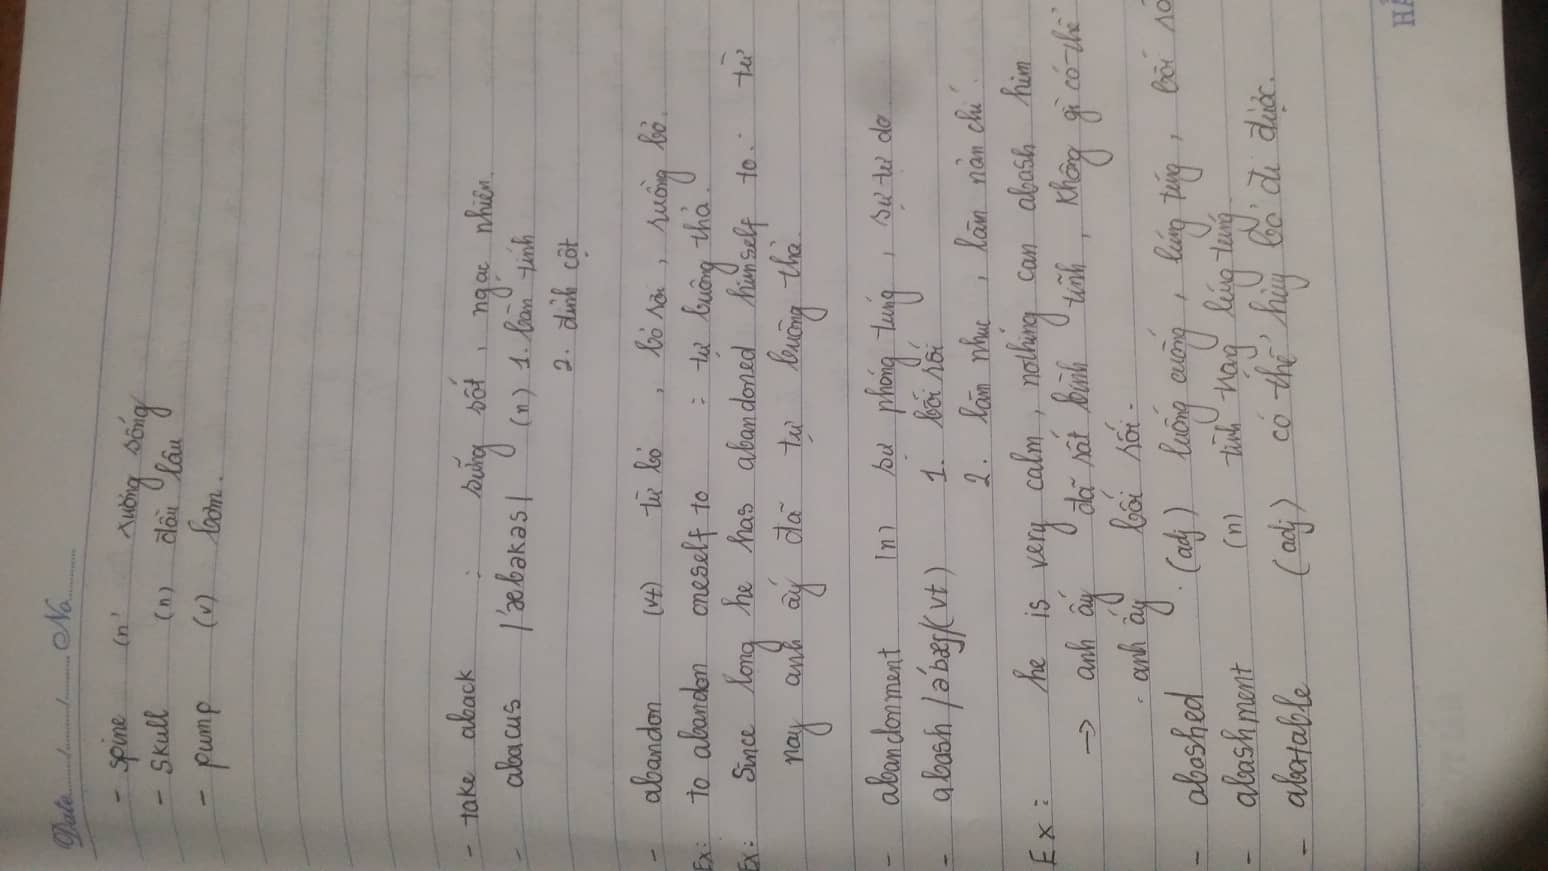 Date....../....../...... No...........
- spine (n) xương sống
- skull (n) đầu lâu
- pump (v) bơm.
- take aback : sửng sốt, ngạc nhiên.
- abacus /'æbəkəs/ (n) 1. bàn tính
2. đỉnh cột
- abandon (vt) từ bỏ, bỏ rơi, ruồng bỏ.
Ex: to abandon oneself to : tự buông thả.
Ex: Since long he has abandoned himself to. từ
nay anh ấy đã tự buông thả.
- abandonment (n) sự phóng túng, sự tự do
- abash /ə'bæʃ/(vt) 1. bối rối
2. làm nhục, làm nản chí.
Ex: he is very calm, nothing can abash him
→ anh ấy đã rất bình tĩnh, không gì có thể
anh ấy bối rối.
- abashed (adj) luống cuống, lúng túng, bối rố
- abashment (n) tình trạng lúng túng
- abatable (adj) có thể hủy bỏ đi được.